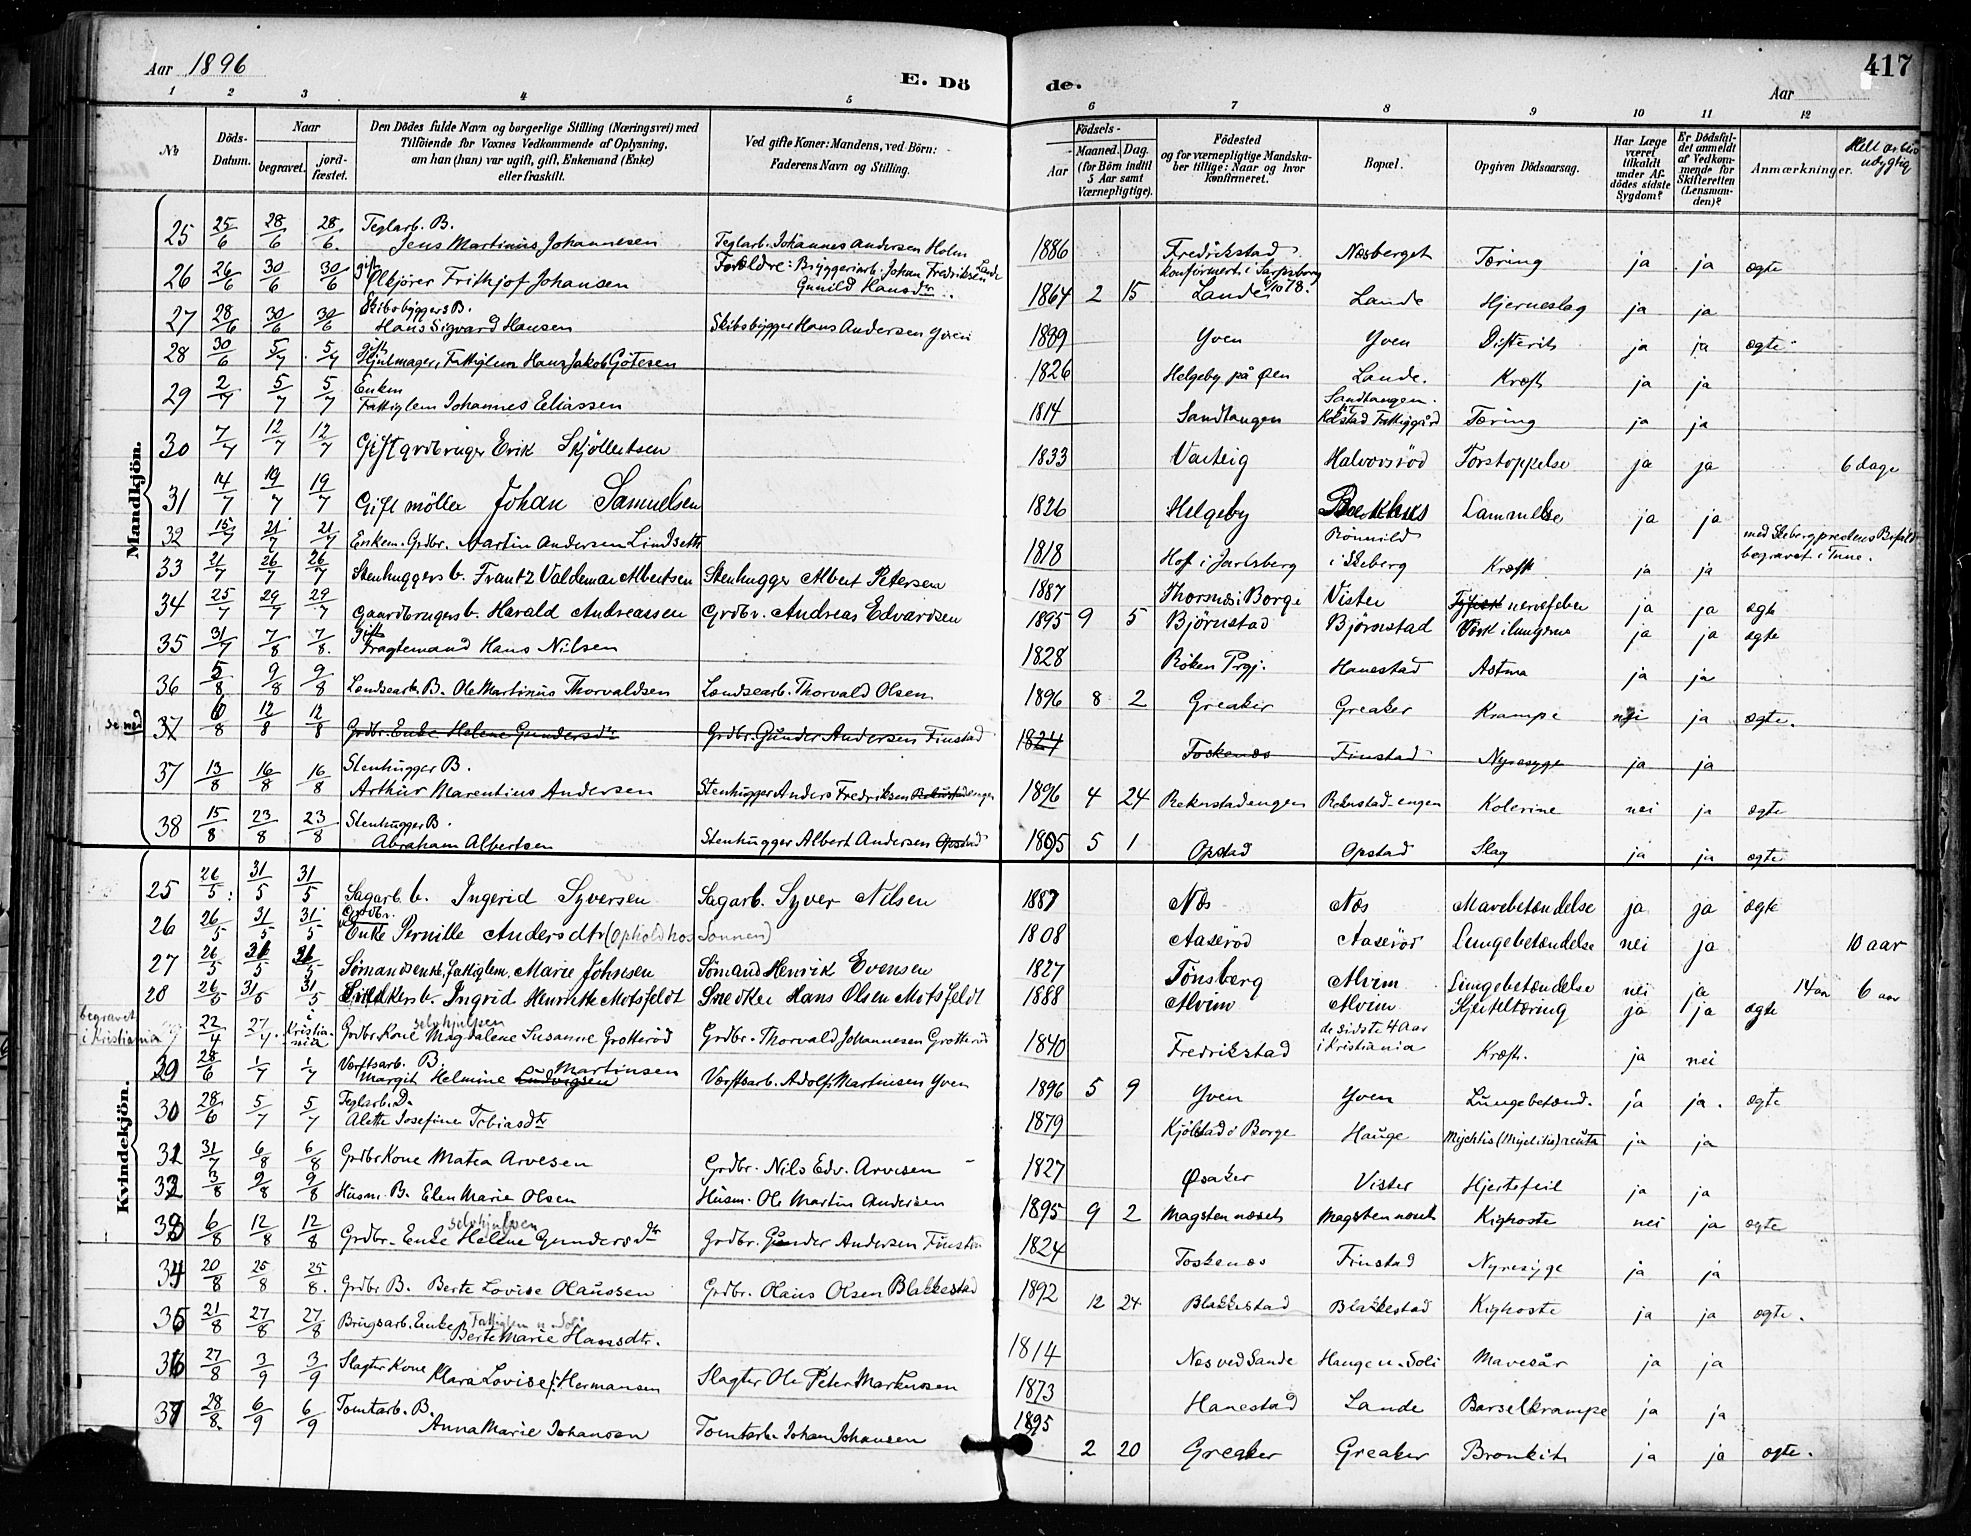 Aar 1896
E. Dö
de.
Aar
417
1 2 3 4 5 6 7 8 9 10 11 12
No
Döds-Datum.
Naar
begravet.
jord-fæstet.
Den Dödes fulde Navn og borgerlige Stilling (Næringsvei) med Tilföiende for Voxnes Vedkommende af Oplysning, om han (hun) var ugift, gift, Enkemand (Enke) eller fraskilt.
Ved gifte Koner: Mandens, ved Börn: Faderens Navn og Stilling.
Födsels-
Aar
Maaned. Dag.
(for Börn indtil 5 Aar samt Værnepligtige).
Födested og for værnepligtige Mandskaber tillige: Naar og hvor konfirmeret.
Bopæl.
Opgiven Dödsaarsag.
Har Læge været tilkaldt under Afdödes sidste Sygdom?
Er Dödsfaldet anmeldt af Vedkommende for Skifteretten (Lensmanden)?
Anmærkninger.
Helt arbeidsudygtig
Mandkjön.
25 25/6 28/6 28/6 Teglarb. B. Jens Martinius Johannesen Teglarb. Johannes Andersen Holm 1886 Fredrikstad Næsberget Tæring ja ja ægte
26 26/6 30/6 30/6 gift Ølkjörer Frithjof Johansen Forældre: Bryggeriarb. Johan Fredriksen Lande Gunild Hansdtr. 1864 2 15 konfirmert i Sarpsborg 6/10 78. Lande Lande Hjerneslag ja ja
27 28/6 30/6 30/6 Skibsbyggers B. Hans Sigvard Hansen Skibsbygger Hans Andersen Yven 1889 Yven Yven Difterit ja ja ægte
28 30/6 5/7 5/7 gift Hjulmager, Fattiglem Hans Jakob Götesen 1826 Helgeby på Øen Lande. Kræft ja ja
29 2/7 5/7 5/7 Enkem Fattiglem Johannes Eliassen 1814 Sandtangen Sandtangen. Kolstad Fattiggård Tæring ja ja
30 7/7 12/7 12/7 Gift grdbruger Erik Skjöllertsen 1833 Varteig Halvorsröd Forstoppelse ja ja 6 dage
31 14/7 19/7 19/7 Gift möller Johan Samuelsen 1826 Helgeby Bækhus Lammelse ja ja
32 15/7 21/7 21/7 Enkem. Grdbr. Martin Andersen Lindseth 1818 Hof i Jarlsberg Rönnild i Skeberg Kræft ja ja begravet i Tune.
33 21/7 26/7 26/7 Stenhuggers b. Frantz Valdemar Albertsen Stenhugger Albert Petersen 1887 Thorsnæs i Borge Vister nervefeber ja ja ægte
34 25/7 29/7 29/7 Gaardbrugers b. Harald Andreassen Grdbr. Andreas Edvardsen 1895 9 5 Björnstad Björnstad Værk i lungerne ja ja ægte
35 31/7 7/8 7/8 gift Fragtemand Hans Nilsen 1828 Röken Prgj. Hanestad Astma ja ja
36 5/8 9/8 9/8 Landsearb. B. Ole Martinus Thorvaldsen Landsearb. Thorvald Olsen 1896 8 2 Greaker Greaker Krampe nei ja ægte.
se ned 37 6/8 12/8 12/8 Grdbr. Enke Helene Gundersdtr Grdbr. Gunder Andersen Finstad 1824 Toskenæs Finstad Nyresyge ja ja
37 13/8 16/8 16/8 Stenhugger B. Arthur Marentius Andersen Stenhugger Anders Fredriksen Reknstadengen 1896 4 24 Reknstadengen Reknstad-engen Kolerine nei ja ægte
38 15/8 23/8 23/8 Stenhugger B. Abraham Albertsen Stenhugger Albert Andersen Opstad 1895 5 1 Opstad Opstad Slag ja ja ægte
Kvindekjön.
25 26/5 31/5 31/5 Sagarb. b. Ingerid Syversen Sagarb. Syver Nilsen 1887 Næs Næs Mavebetændelse ja ja ægte
26 26/5 31/5 31/5 Grdbr. Enke Pernille Andersdtr (ophold hos Sonnen) 1808 Aaseröd Aaseröd Lungebetændelse nei ja 10 aar
27 26/5 31/5 31/5 Sömandsenke, fattiglem. Marie Johnsen Sömand Henrik Evensen 1827 Tönsberg Alvim Lungebetændelse nei ja 14 aar 6 aar
28 26/5 31/5 31/5 Snedkers b. Ingrid Henriette Motsfeldt Snedker Hans Olsen Motsfeldt 1888 Alvim Alvim Kjerteltæring ja ja ægte
begravet i Kristiania 22/4 27/4. i Kristiania Grdbr. Kone selvhjulpen Magdalene Susanne Grotteröd Grdbr. Thorvald Johannesen Grotteröd 1840 Fredrikstad de sidste 4 Aar i Kristiania Kræft. ja nei
29 28/6 1/7 1/7 Værftsarb. B. Margit Helmine Ludvigsen Martinsen Værftsarb. Adolf Martinsen Yven 1896 5 9 Yven Yven Lungebetænd. ja ja. ægte
30 28/6 5/7 5/7 Teglarb. D. Alette Josefine Tobiasdtr 1879 Kjölstad i Borge Hauge (Myelitis) acuta ja ja
31 31/7 6/8 6/8 Grdbr Kone Matea Arvesen Grdbr. Nils Edv. Arvesen 1827 Øsaker Vister Hjertefeil ja ja
32 3/8 9/8 9/8 Husm. B. Elen Marie Olsen Husm. Ole Martin Andersen 1895 9 2 Magstennæset Magstennæset Kighoste nei ja ægte
33 6/8 12/8 12/8 Grdbr. Enke selvhjulpen Helene Gundersdtr Grdbr. Gunder Andersen Finstad 1824 Toskenæs Finstad Nyresyge ja ja
34 20/8 25/8 25/8. Grdbr B. Berte Lovise Olaussen Grdbr. Olaus Olsen Blakkestad 1892 12 24 Blakkestad Blakkestad Kighoste ja ja ægte.
35 21/8 27/8 27/8 Brugsarb. Enke Fattiglem u. Soli Berte Marie Hansdtr. 1814 Næs ved Sande Hauge u. Soli Mavesår ja ja
36 27/8 3/9 3/9 Slagter Kone Klara Lovise f. Hermansen Slagter Ole Peter Markussen 1873 Hanestad Lande Barselkrampe ja ja
37 28/8. 6/9 6/9 Tomtarb. B. Anna Marie Johansen Tomtarb. Johan Johansen 1895 2 20 Greaker Greaker Bronkit ja ja ægte.